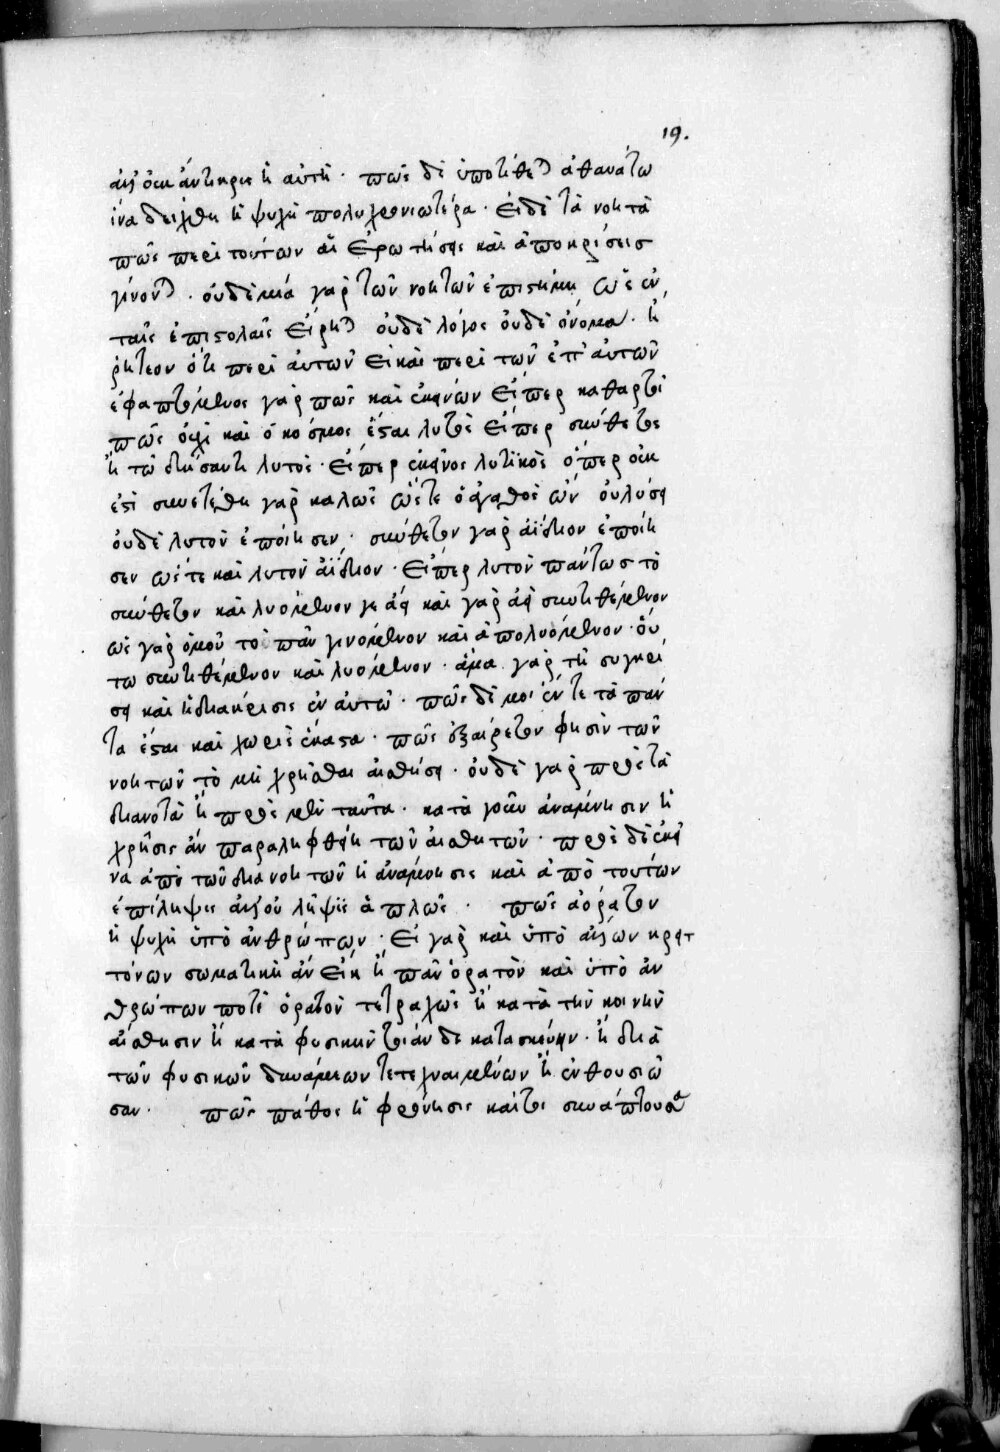 19.
ἀλλ' οὐκ ἄντικρυς ἡ αὐτή. πῶς δὲ ὑποτίθεται ἀθανάτω
ἵνα δειχθῆ ἡ ψυχὴ πολυχρονιωτέρα. εἰ δὲ τὰ νοητὰ
πῶς περὶ τούτων αἱ ἐρωτήσεις καὶ ἀποκρίσεις
γίνονται. οὐδεμία γὰρ τῶν νοητῶν ἐπιστήμη ὡς ἐν
ταῖς ἐπιστολαῖς εἴρηται οὐδὲ λόγος οὐδὲ ὄνομα. ἢ
ῥητέον ὅτι περὶ αὐτῶν εἰ καὶ περὶ τῶν ἐπ' αὐτῶν
ἐφαπτόμενος γὰρ πως καὶ ἐκείνων εἴπερ καθαρτοὶ
πῶς οὐχὶ καὶ ὁ κόσμος ἔσται λυτὸς εἴπερ σύνθετος
ἢ τῶ δήσαντι λυτός. εἴπερ ἐκεῖνος λυτικὸς ὅπερ οὐκ
ἔστι συνετέθη γὰρ καλῶς ὥστε ὁ ἀγαθὸς ὢν οὐ λύσει
οὐδὲ λυτὸν ἐποίησεν. σύνθετον γὰρ ἀΐδιον ἐποίη
σεν ὥστε καὶ λυτὸν ἀΐδιον. εἴπερ λυτὸν πάντως τὸ
σύνθετον καὶ λυόμενόν γε ἀεὶ καὶ γὰρ ἀεὶ συντιθέμενον
ὡς γὰρ ὁμοῦ τὸ πᾶν γινόμενον καὶ ἀπολυόμενον. οὕ
τω συντιθέμενον καὶ λυόμενον. ἅμα γὰρ τῆ συγκρί
σει καὶ ἡ διάκρισις ἐν αὐτῶ. πῶς δέ μοι ἕν τε τὰ πάν
τα ἔσται καὶ χωρὶς ἕκαστα. πῶς ἐξαίρετόν φησιν τῶν
νοητῶν τὸ μὴ χρῆσθαι αἰσθήσει. οὐδὲ γὰρ πρὸς τὰ
διανοητὰ ἢ πρὸς μὲν ταῦτα. κατὰ γοῦν ἀνάμνησιν ἡ
χρῆσις ἂν παραληφθείη τῶν αἰσθητῶν. πρὸς δὲ ἐκεῖ
να ἀπὸ τῶν διανοητῶν ἡ ἀνάμνησις καὶ ἀπὸ τούτων
ἐπίληψις ἀλλ' οὐ λῆψις ἁπλῶς. πῶς ἀόρατον
ἡ ψυχὴ ὑπὸ ἀνθρώπων. εἰ γὰρ καὶ ὑπὸ ἄλλων κρειτ
τόνων σωματικὴ ἂν εἴη ἢ πᾶν ὁρατὸν καὶ ὑπὸ ἀν
θρώπων ποτὲ ὁρατὸν τετραχῶς ἢ κατὰ τὴν κοινὴν
αἴσθησιν ἢ κατὰ φυσικὴν τοιάνδε κατασκευήν. ἢ διὰ
τῶν φυσικῶν δυνάμεων τετεχνασμένων ἢ ἐνθουσιῶ
σαν. πῶς πάθος ἡ φρόνησις καίτοι συνάπτουσα